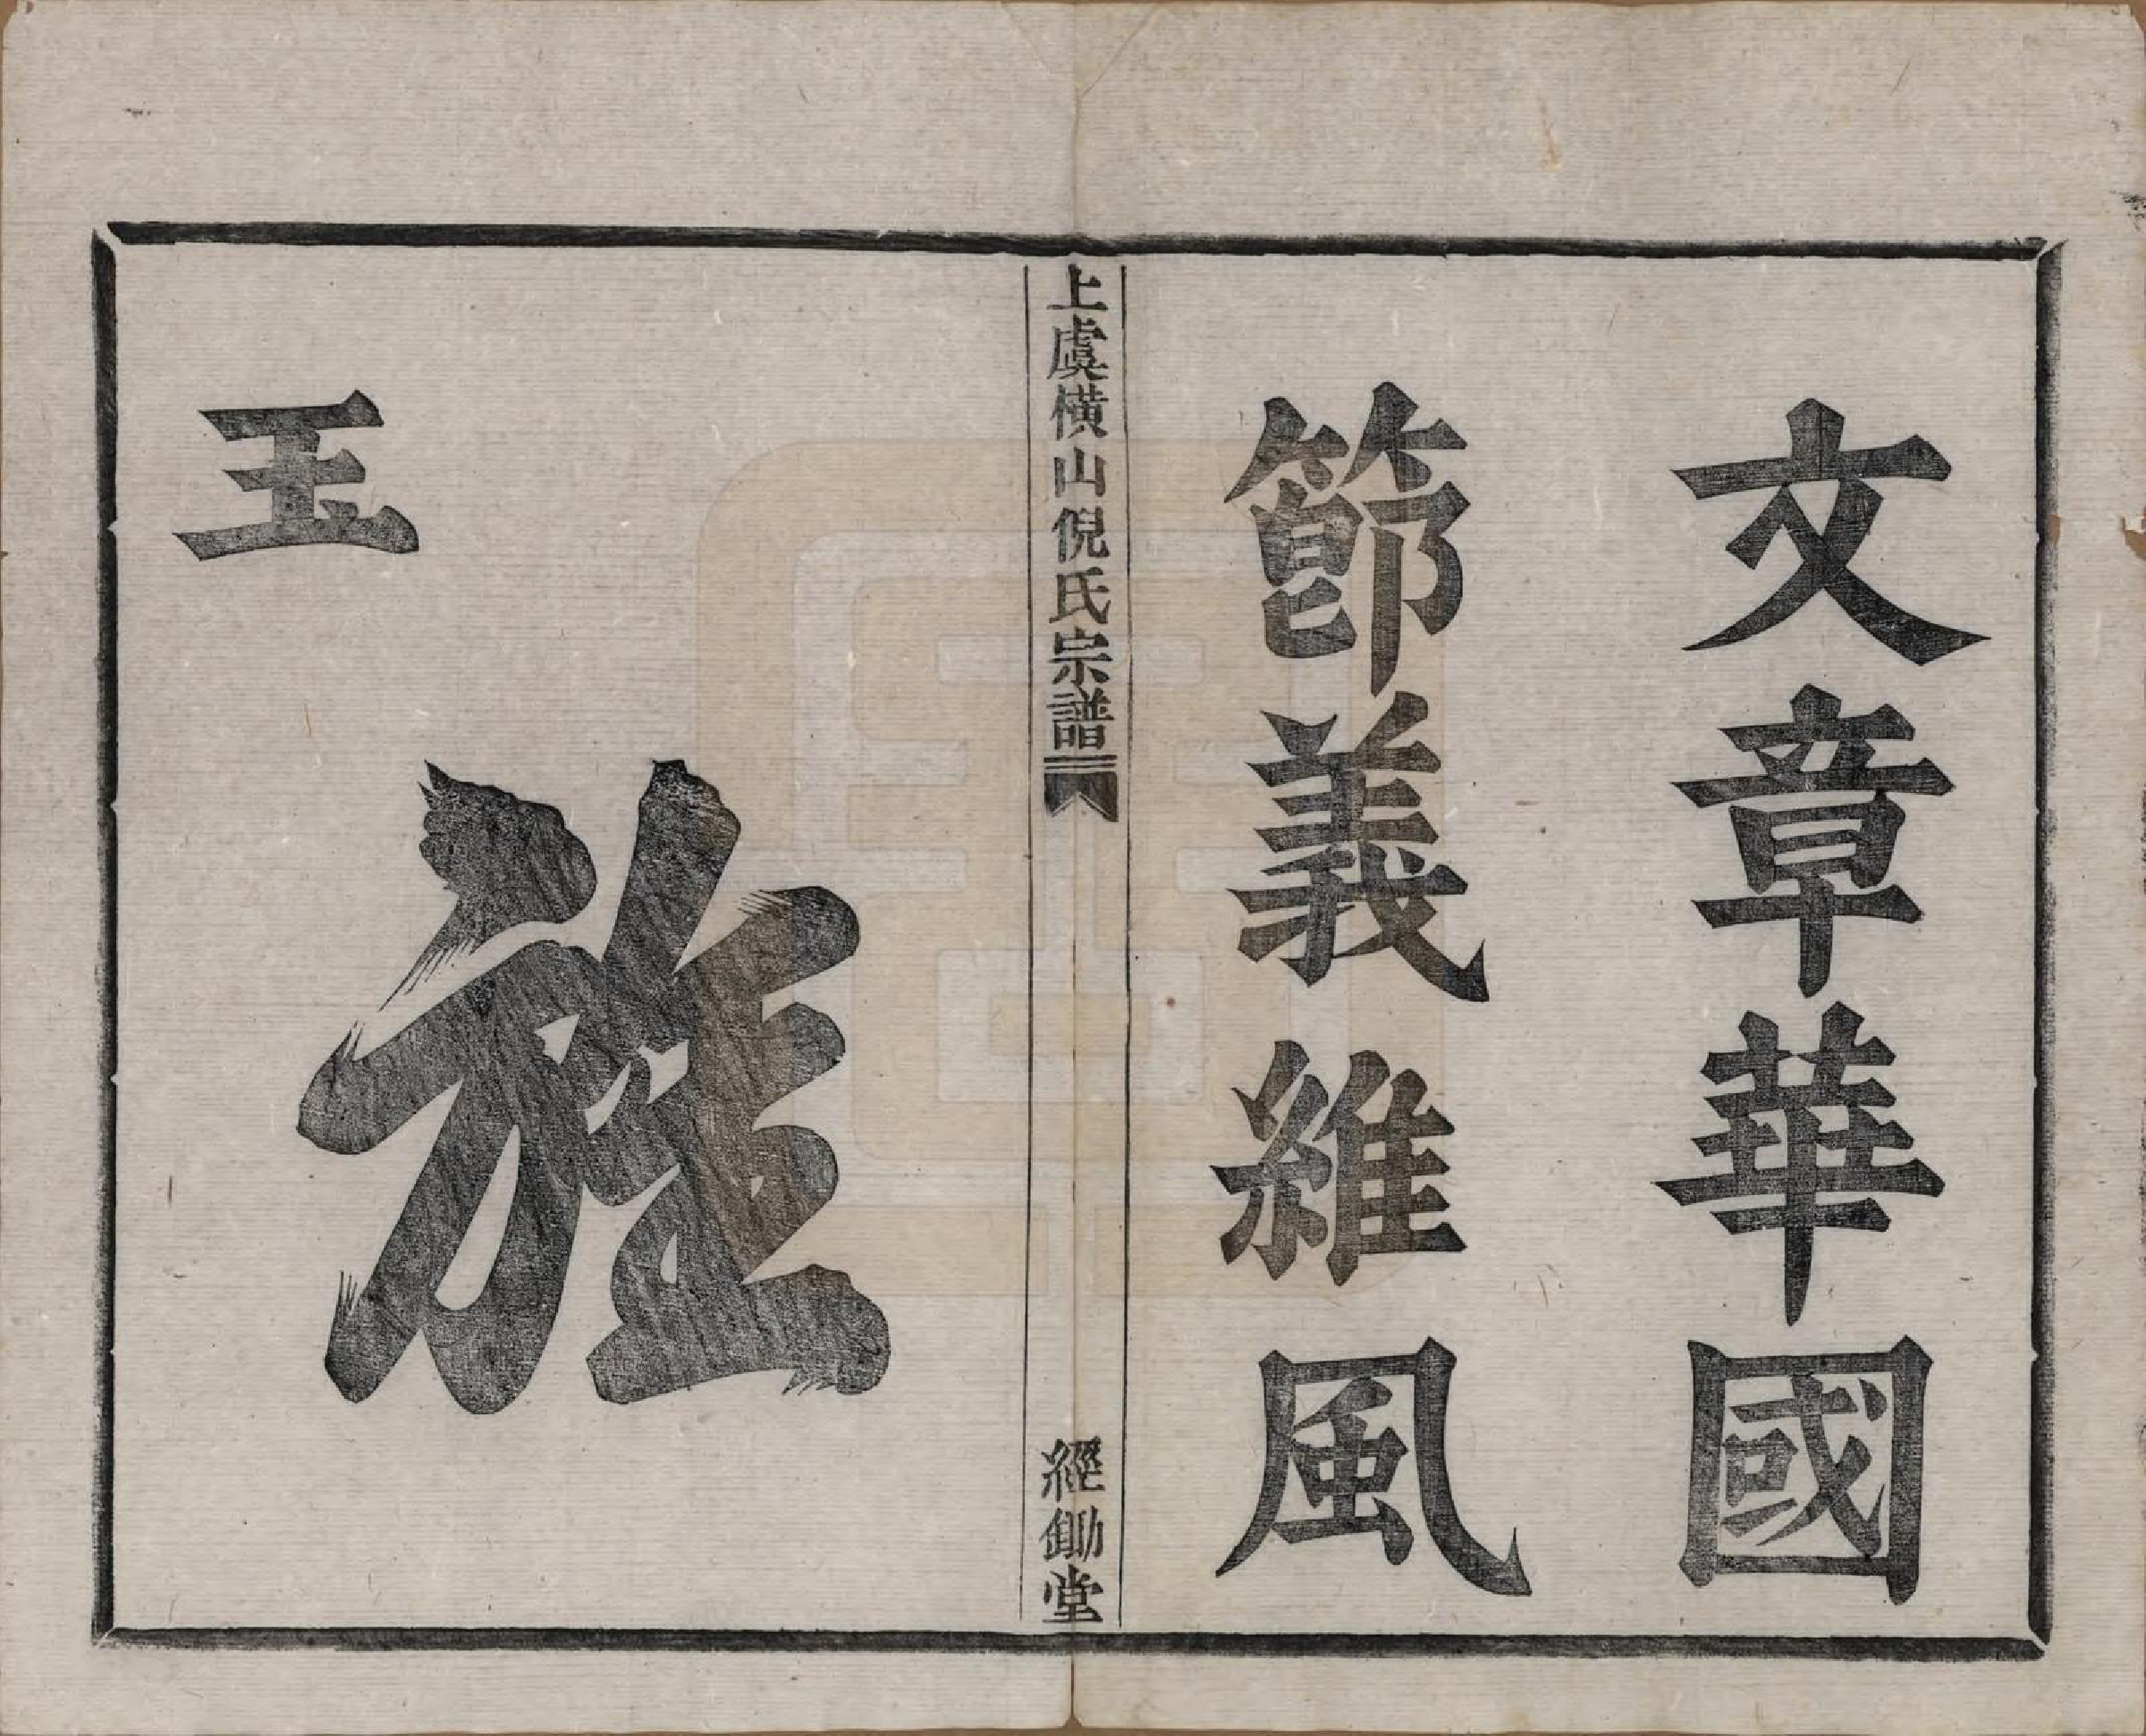 文章華國
節義維風
上虞横山倪氏宗譜
經鋤堂
旌
玉